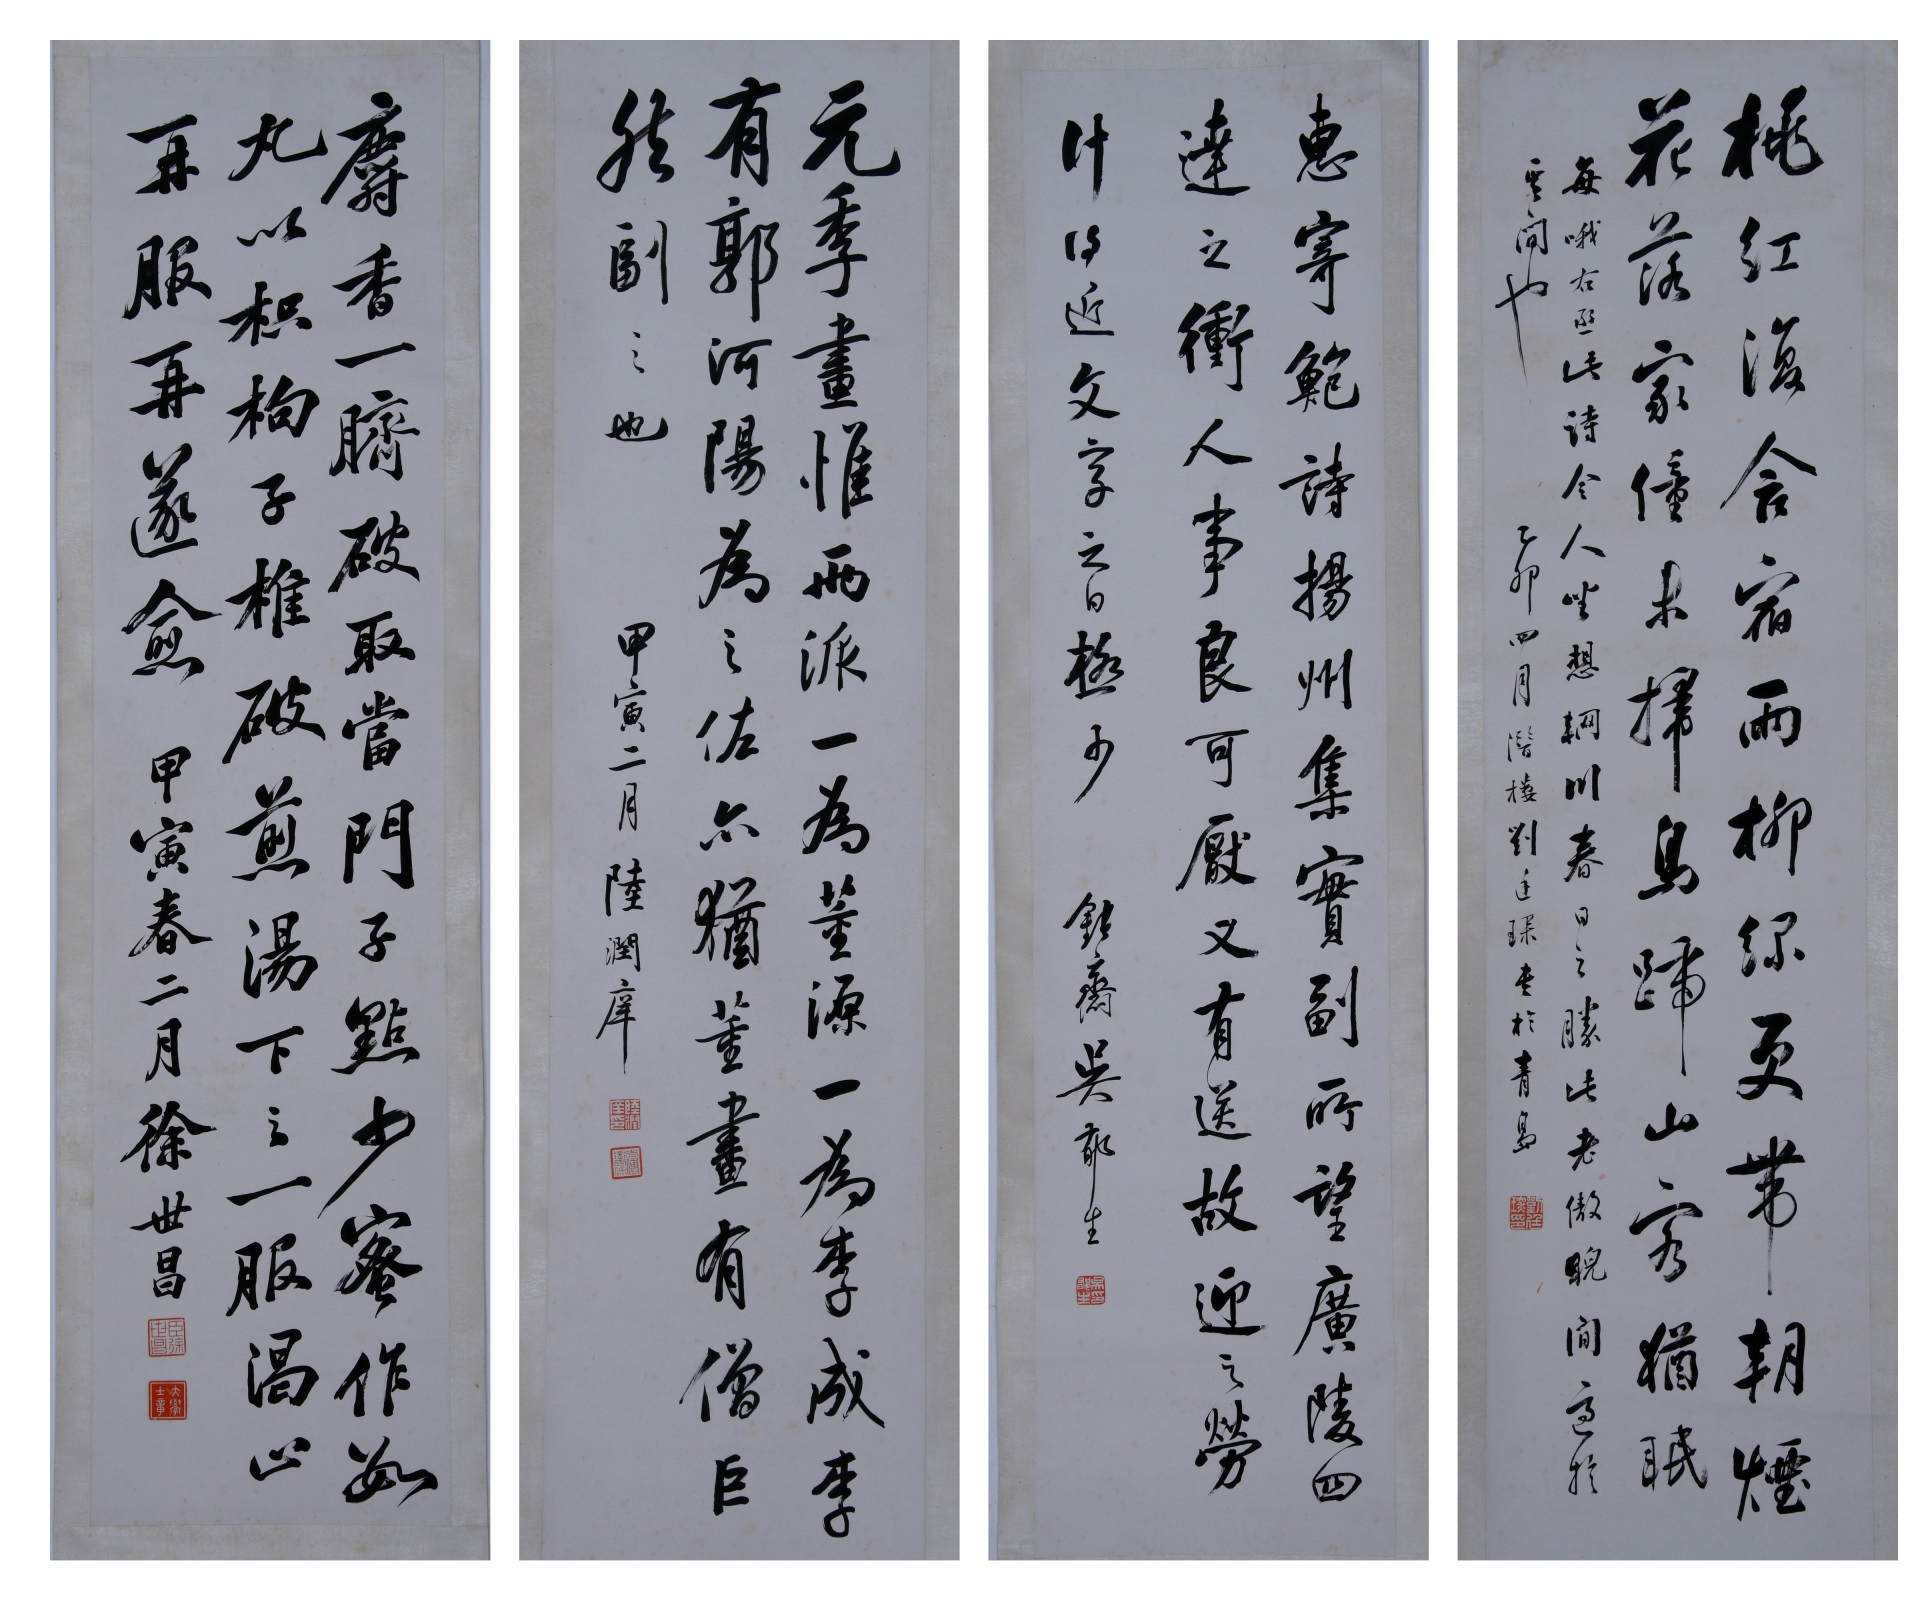 桃紅復含宿雨柳綠更帶朝煙
花落家僮未掃鳥啼山客猶眠
每哦右丞此詩令人坐想輞川春日之勝此老傲睨閒適於
其間也
乙卯四月潛樓劉廷琛書於青島
惠寄鮑詩揚州集實副所望廣陵四
達之衝人事良可厭又有送故迎之勞
什得近文字之日極少
鈍齋吳郁生
元季畫惟兩派一為董源一為李成李
有郭河陽為之佐亦猶董畫有僧巨
然副之也
甲寅二月陸潤庠
麝香一臍破取當門子點少蜜作如
丸以枳枸子椎破煎湯下之一服渴止
再服再遂愈
甲寅春二月徐世昌